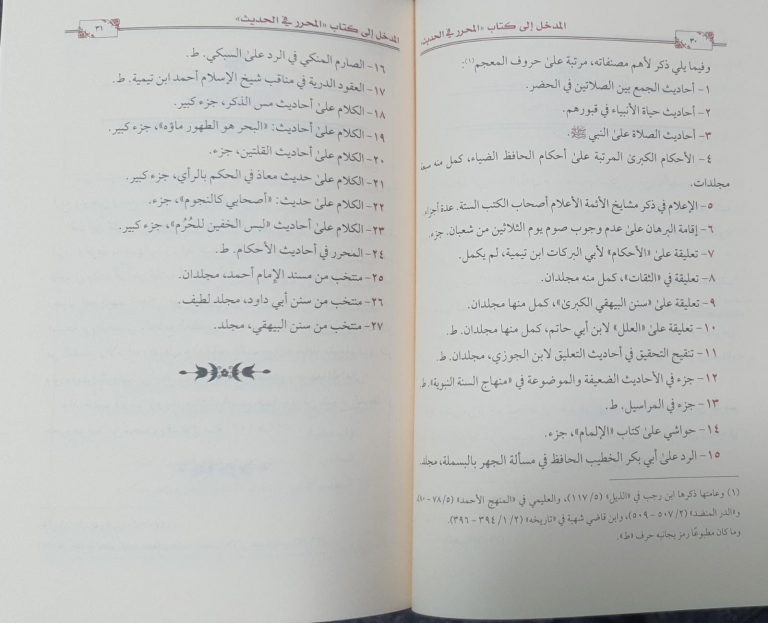 المدخل إلى كتاب «المحرر في الحديث»
٣٠
وفيما يلي ذكر لأهم مصنفاته، مرتبة على حروف المعجم(١):
١- أحاديث الجمع بين الصلاتين في الحضر.
٢- أحاديث حياة الأنبياء في قبورهم.
٣- أحاديث الصلاة على النبي ﷺ.
٤- الأحكام الكبرى المرتبة على أحكام الحافظ الضياء، كمل منه سبعة
مجلدات.
٥- الإعلام في ذكر مشايخ الأئمة الأعلام أصحاب الكتب الستة. عدة أجزاء.
٦- إقامة البرهان على عدم وجوب صوم يوم الثلاثين من شعبان. جزء.
٧- تعليقة على «الأحكام» لأبي البركات ابن تيمية، لم يكمل.
٨- تعليقة في «الثقات»، كمل منه مجلدان.
٩- تعليقة على «سنن البيهقي الكبرى»، كمل منها مجلدان.
١٠- تعليقة على «العلل» لابن أبي حاتم، كمل منها مجلدان. ط.
١١- تنقيح التحقيق في أحاديث التعليق لابن الجوزي، مجلدان. ط.
١٢- جزء في الأحاديث الضعيفة والموضوعة في «منهاج السنة النبوية». ط
١٣- جزء في المراسيل. ط.
١٤- حواشي على كتاب «الإلمام»، جزء.
١٥- الرد على أبي بكر الخطيب الحافظ في مسألة الجهر بالبسملة، مجلد.
(١) وعامتها ذكرها ابن رجب في «الذيل» (١١٧/٥)، والعليمي في «المنهج الأحمد» (٧٨/٥-
و«الدر المنضد» (٥٠٧/٢ - ٥٠٩)، وابن قاضي شهبة في «تاريخه» (٣٩٤/١/٢ - ٣٩٦).
وما كان مطبوعًا رمز بجانبه حرف «ط».
المدخل إلى كتاب «المحرر في الحديث»
٣١
١٦- الصارم المنكي في الرد على السبكي. ط.
١٧- العقود الدرية في مناقب شيخ الإسلام أحمد ابن تيمية. ط.
١٨- الكلام على أحاديث مس الذكر، جزء كبير.
١٩- الكلام على أحاديث: «البحر هو الطهور ماؤه»، جزء كبير.
٢٠- الكلام على أحاديث القلتين، جزء.
٢١- الكلام على حديث معاذ في الحكم بالرأي، جزء كبير.
٢٢- الكلام على حديث: «أصحابي كالنجوم»، جزء.
٢٣- الكلام على أحاديث «لبس الخفين للحُرُم»، جزء كبير.
٢٤- المحرر في أحاديث الأحكام. ط.
٢٥- منتخب من مسند الإمام أحمد، مجلدان.
٢٦- منتخب من سنن أبي داود، مجلد لطيف.
٢٧- منتخب من سنن البيهقي، مجلد.